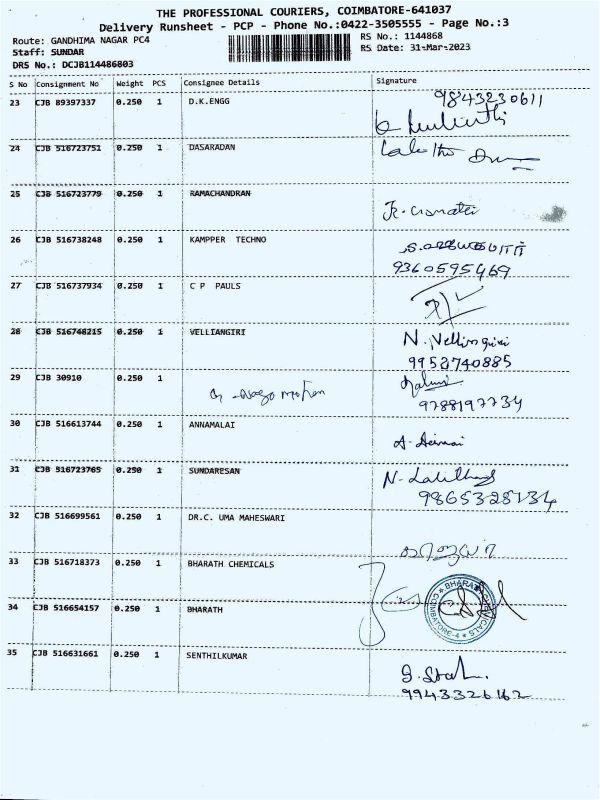 THE PROFESSIONAL COURIERS, COIMBATORE-641037
Delivery Runsheet - PCP - Phone No.:0422-3505555 - Page No.:3
Route: GANDHIMA NAGAR PC4
RS No.: 1144868
Staff: SUNDAR
RS Date: 31-Mar-2023
DRS No.: DCJB114486803
S No Consignment No Weight PCS Consignee Details Signature
23 CJB 89397337 0.250 1 D.K.ENGG 9843230611
24 CJB 516723751 0.250 1 DASARADAN
25 CJB 516723779 0.250 1 RAMACHANDRAN
26 CJB 516738248 0.250 1 KAMPPER TECHNO
9360595469
27 CJB 516737934 0.250 1 C P PAULS
28 CJB 516748215 0.250 1 VELLIANGIRI N. Vellingiri
9952740885
29 CJB 30910 0.250 1
9788197734
30 CJB 516613744 0.250 1 ANNAMALAI
31 CJB 516723765 0.250 1 SUNDARESAN
9865328734
32 CJB 516699561 0.250 1 DR.C. UMA MAHESWARI
33 CJB 516718373 0.250 1 BHARATH CHEMICALS
BHARATH CHEMICALS
COIMBATORE-4
34 CJB 516654157 0.250 1 BHARATH
35 CJB 516631661 0.250 1 SENTHILKUMAR
9943326162